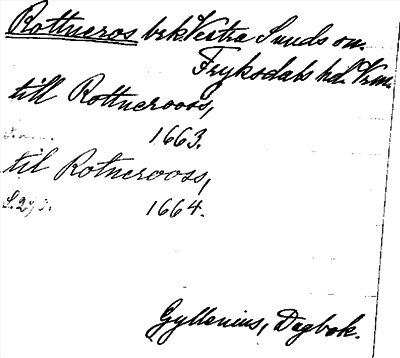 Rottneros brk Västra Sunds sn.
Fryksdals hd. Vrm.
till Rottnerooss,
1663.
til Rotnerooss,
1664.
Gyllenius, Dagbok.